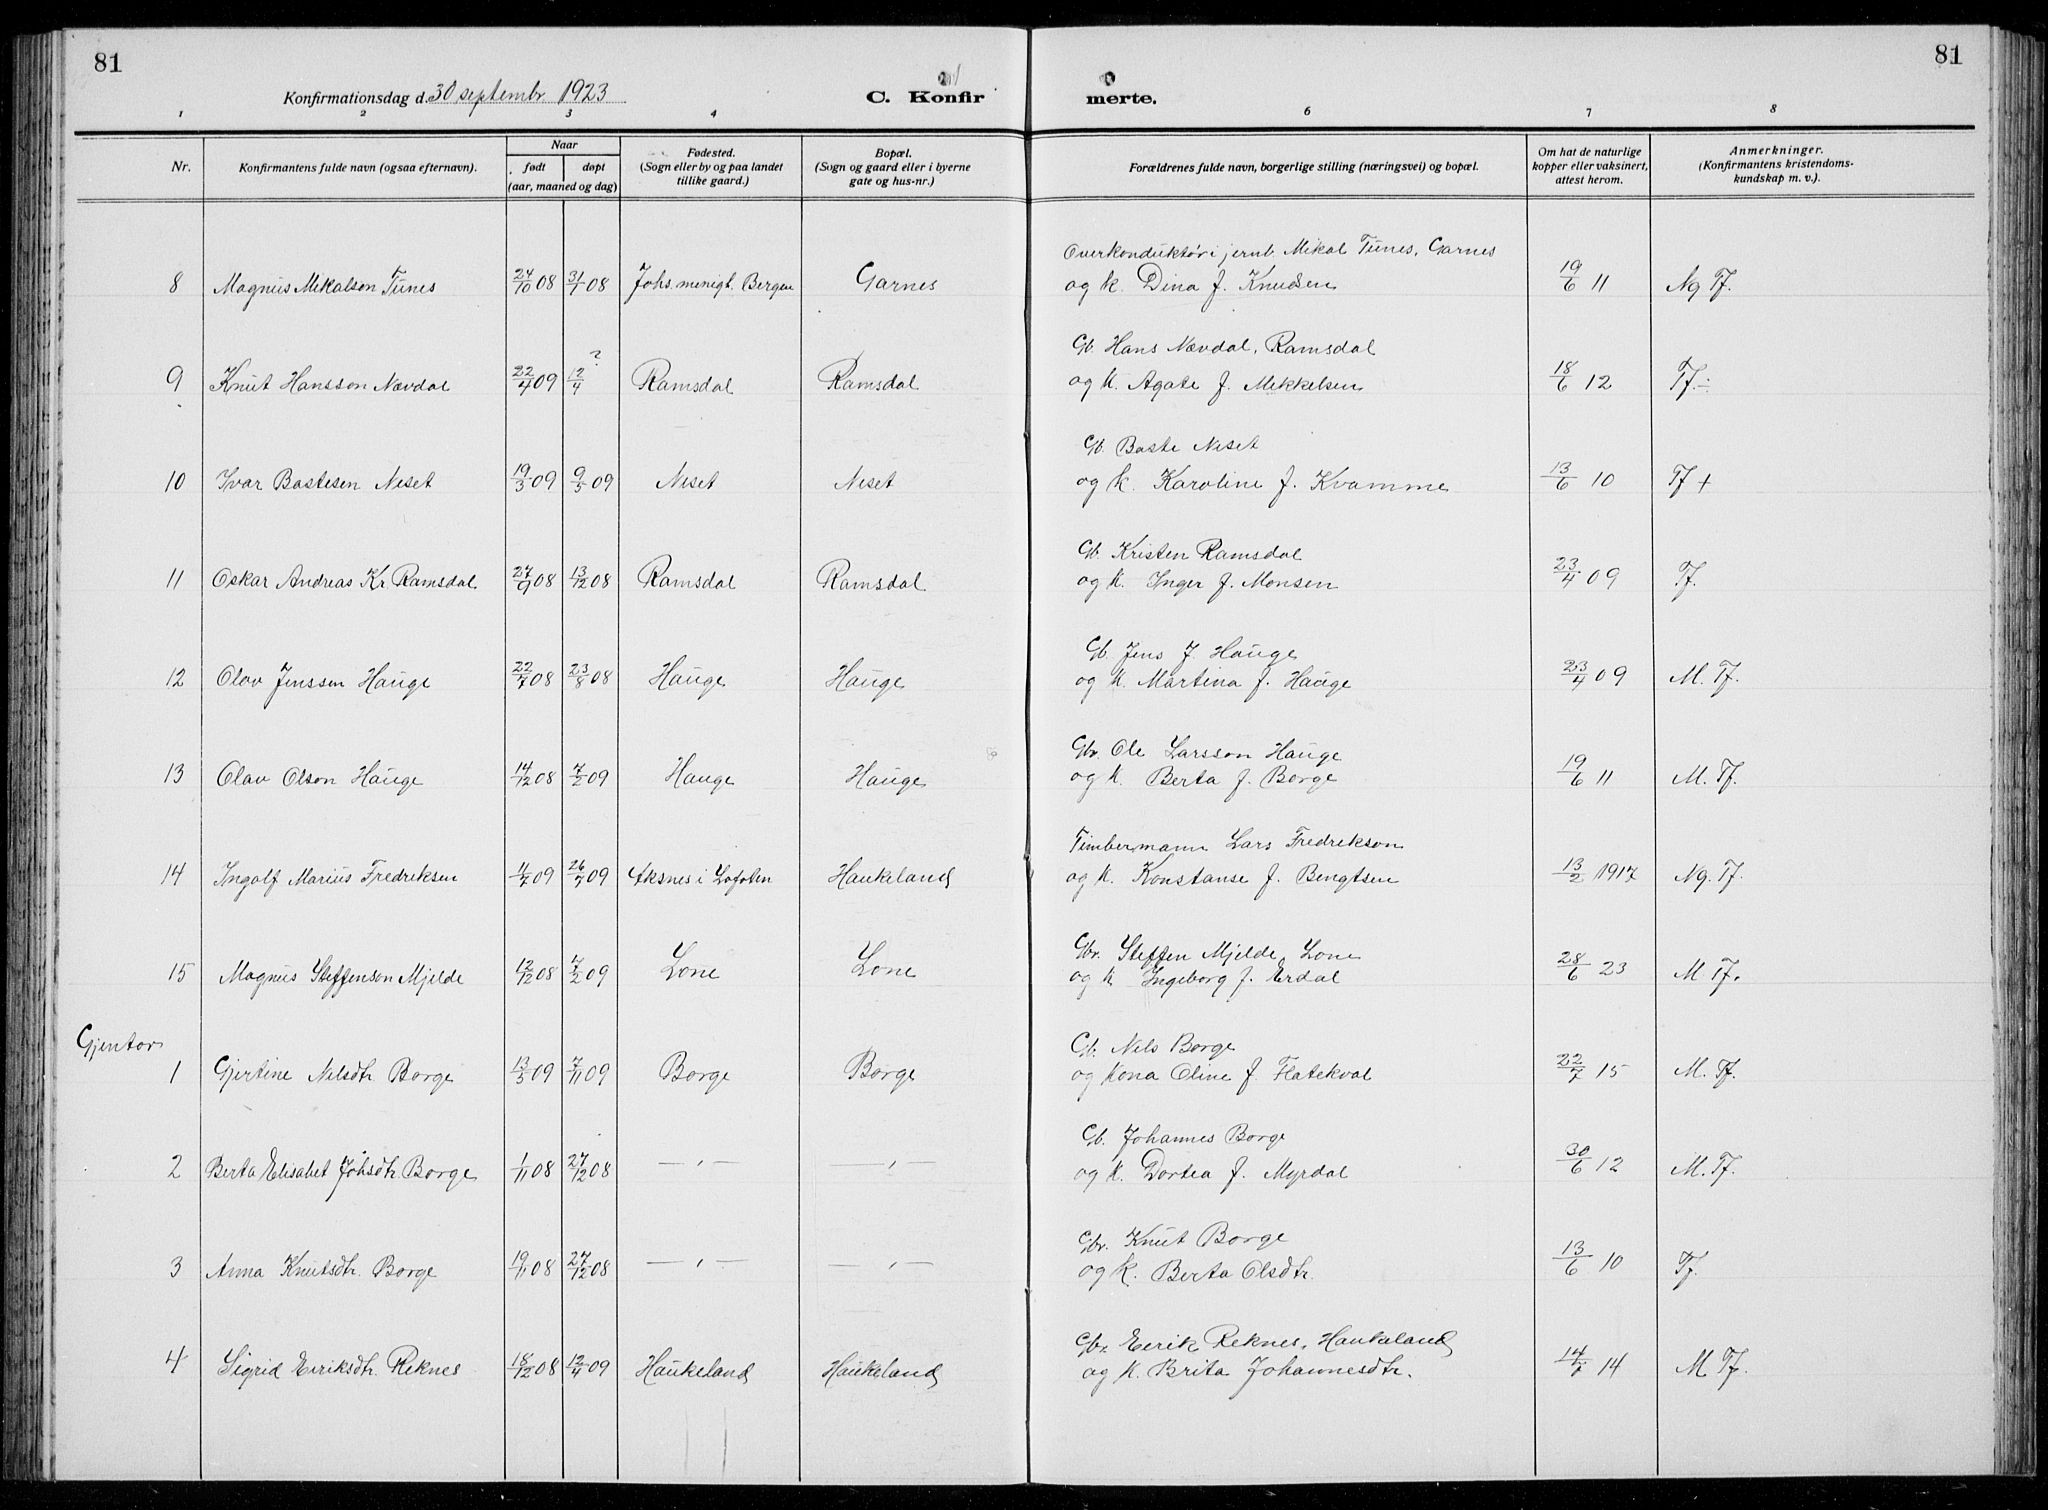 81
81
Konfirmationsdag d. 30 septembr 1923
C. Konfir
merte.
1 2 3 4 6 7 8
Nr.
Konfirmantens fulde navn (ogsaa efternavn).
Naar
født døpt
(aar, maaned og dag)
Fødested.
(Sogn eller by og paa landet
tillike gaard.)
Bopæl.
(Sogn og gaard eller i byerne
gate og hus-nr.)
Forældrenes fulde navn, borgerlige stilling (næringsvei) og bopæl.
Om hat de naturlige
kopper eller vaksinert,
attest herom.
Anmerkninger.
(Konfirmantens kristendoms-
kundskap m. v.).
Overkonduktör i jernb. Mikal Tunes, Garnes
8 Magnus Mikalson Tunes 24/10 08 31/1 08 Johs.menigt. Bergen Garnes og k. Dina f. Knudsen 19/6 11 Ng Tf.
Gb. Hans Nævdal, Ramsdal
9 Knut Hansson Nævdal 22/4 09 12/4 ? Ramsdal Ramsdal og k. Agate f. Mikkelsen 18/6 12 Tf. ÷
Gb. Baste Neset
10 Ivar Bastesen Neset 19/3 09 9/5 09 Neset Neset og k. Karoline f. Kvamme 13/6 10 Tf +
Gb. Kristen Ramsdal
11 Oskar Andreas Kr. Ramsdal 27/9 08 13/12 08 Ramsdal Ramsdal og k. Inger f. Monsen 23/4 09 Tf.
Gb. Jens J. Hauge
12 Olav Jenssen Hauge 22/7 08 23/8 08 Hauge Hauge og k. Martina f. Hauge 23/4 09 M. Tf.
Gbr. Ole Larsson Hauge
13 Olav Olson Hauge 14/12 08 7/2 09 Hauge Hauge og k. Berta f. Borge 19/6 11 M. Tf.
Timbermann Lars Fredrikson
14 Ingolf Marius Fredriksen 4/7 09 26/7 09 Aksnes i Lofoten Haukeland og k. Konstanse f. Bengtsen 13/2 1917 Ng. Tf.
Gbr. Steffen Mjelde, Lone
15 Magnus Steffenson Mjelde 12/12 08 7/2 09 Lone Lone og k Ingeborg f. Erdal 28/6 23 M Tf.
Gjentor
Gb. Nils Borge
1 Gjertine Nilsdtr Borge 13/5 09 7/11 09 Borge Borge og kona Oline f. Flatekval 22/7 15 M. Tf.
Gb. Johannes Borge
2 Berta Elisabet Johsdtr. Borge 1/11 08 27/12 08 — „ — — „ — og k. Dortea f. Myrdal 30/6 12 M. Tf.
Gbr. Knut Borge
3 Anna Knutsdtr. Borge 19/11 08 27/12 08 — „ — — „ — og k. Berta Olsdtr. 13/6 10 Tf.
Gbr. Eerik Reknes, Haukaland
4 Sigrid Eeriksdtr. Reknes 18/12 08 12/4 09 Haukeland Haukeland og k. Brita Johannesdtr. 14/7 14 M Tf.